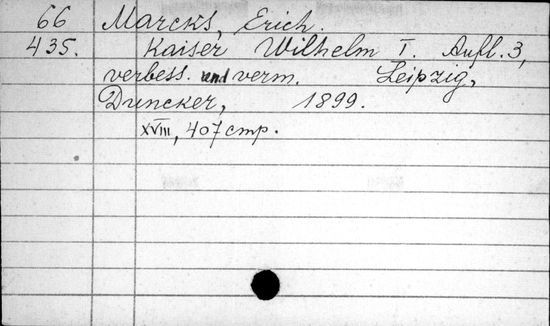 66 Marcks, Erich.
435. Kaiser Wilhelm I. Aufl. 3,
verbess. und verm. Leipzig,
Duncker, 1899.
XVIII, 407 стр.